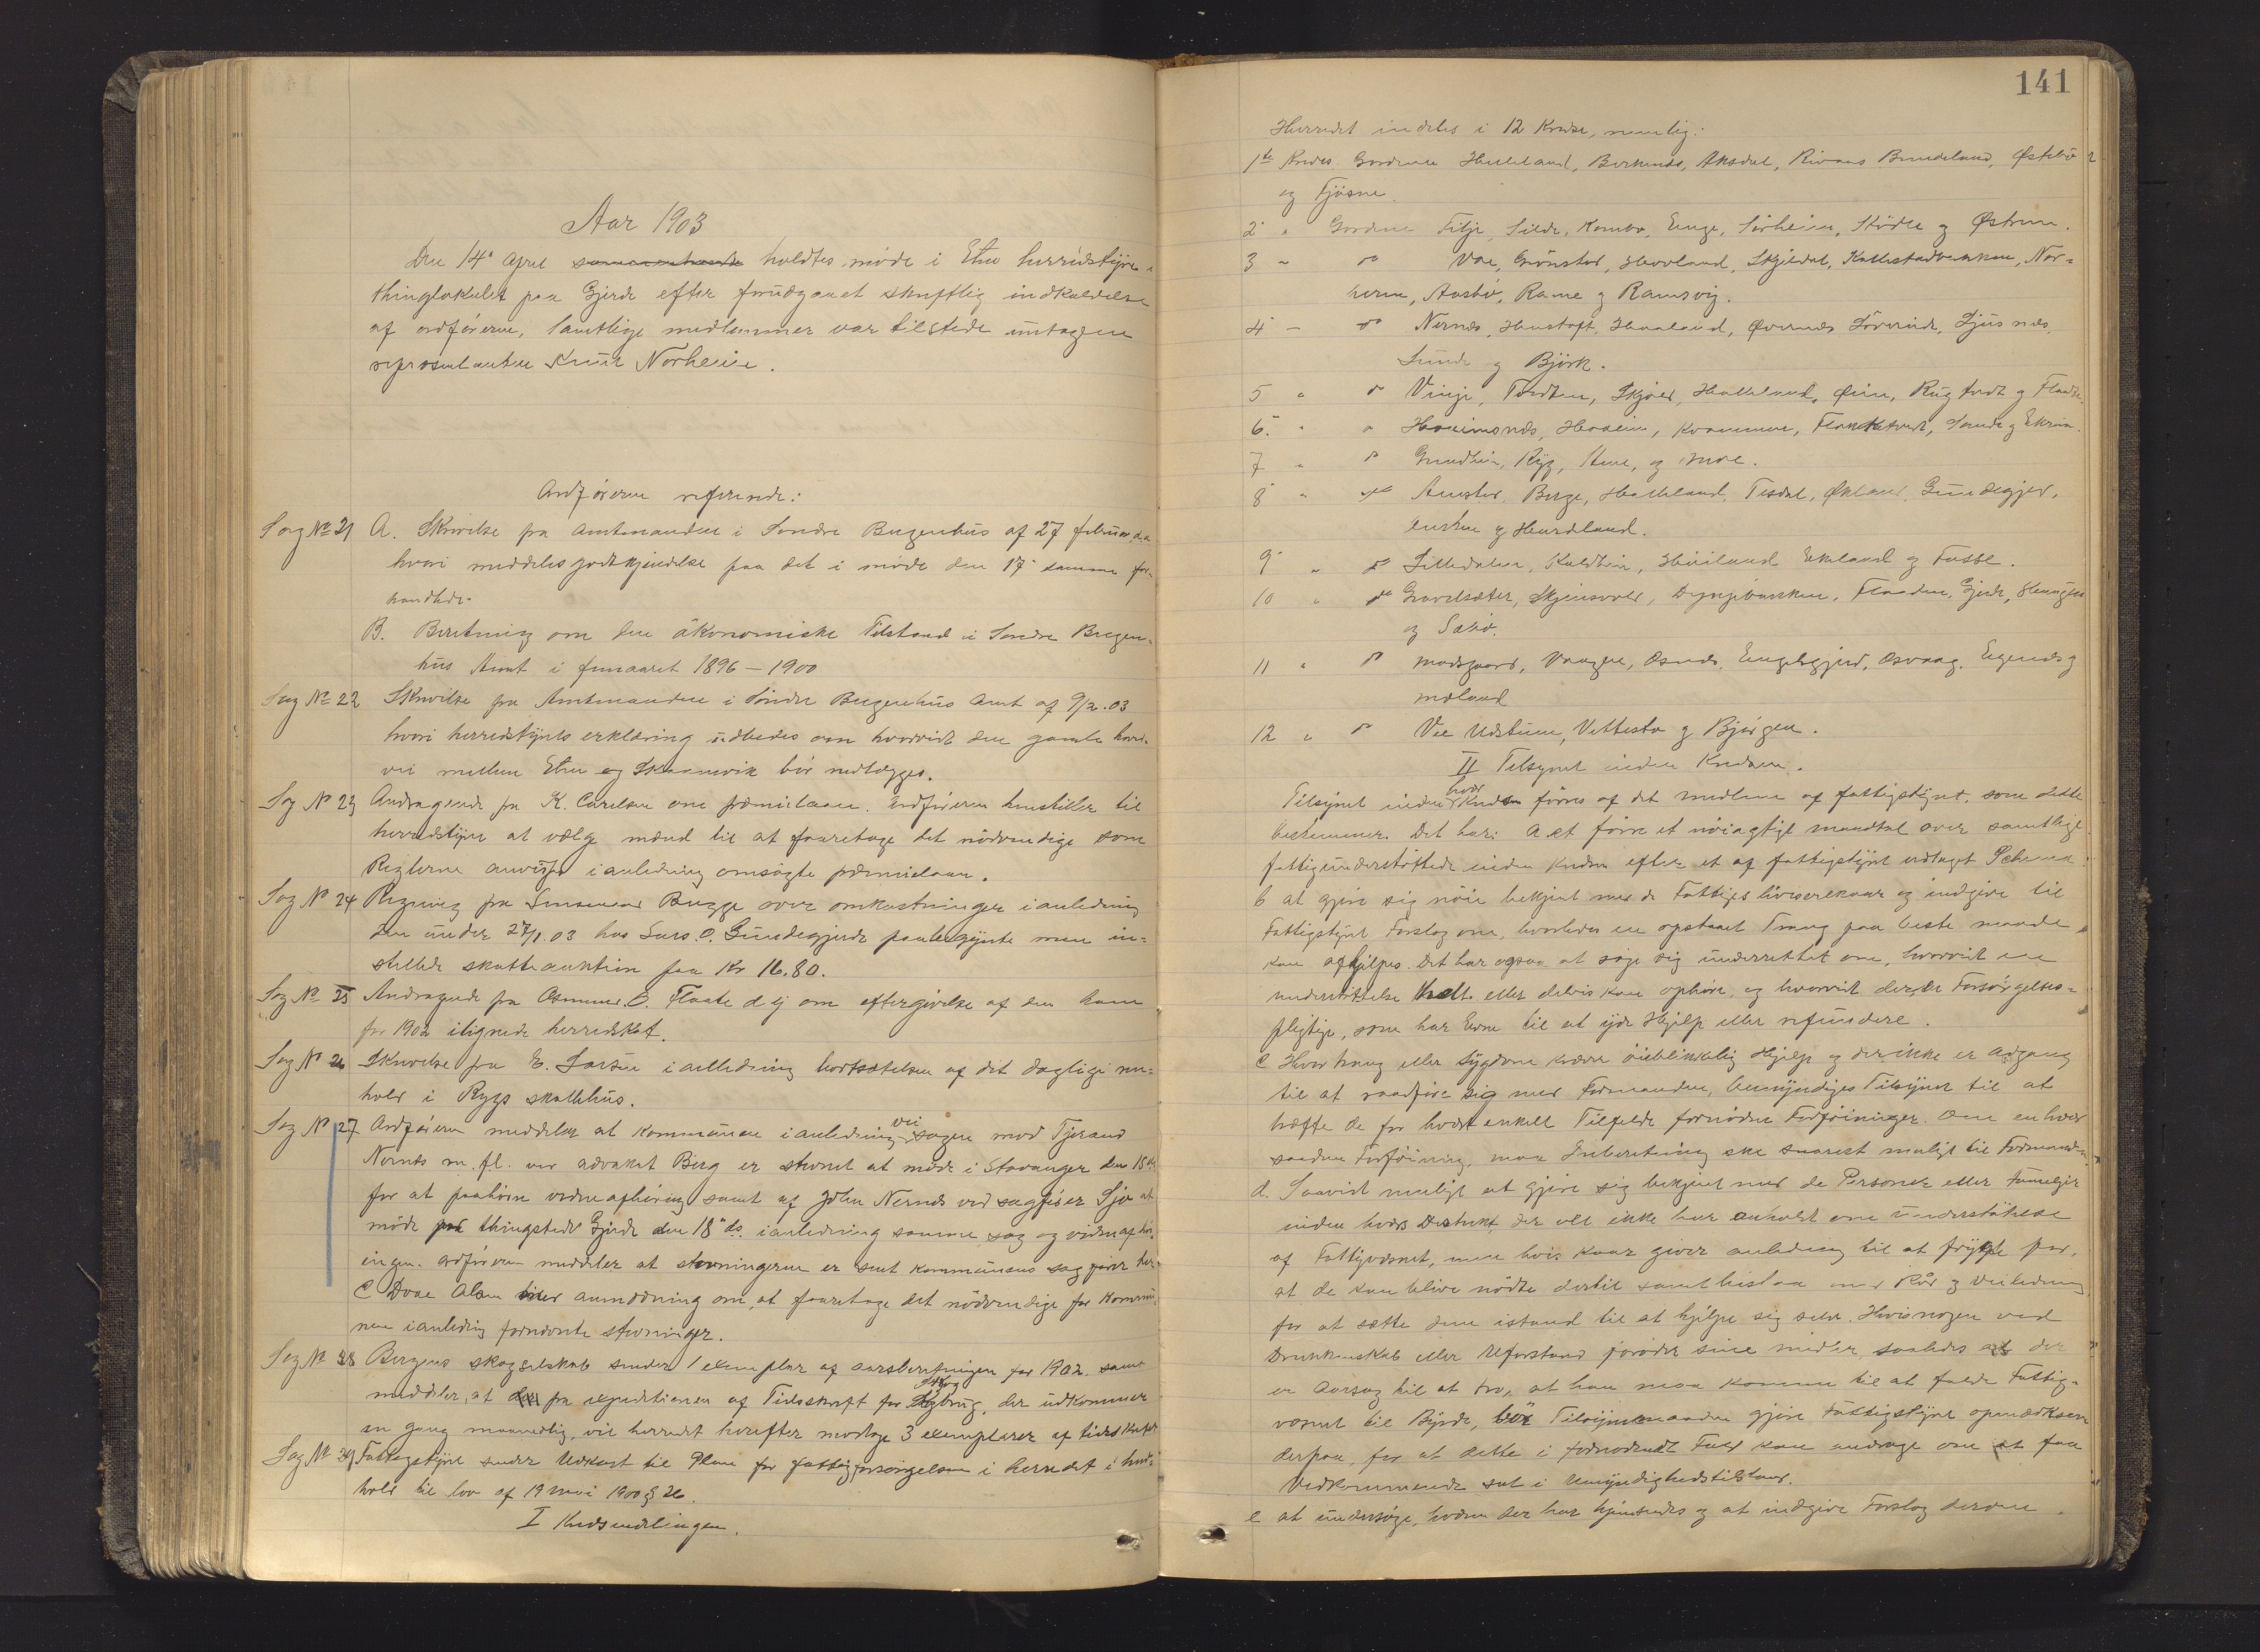 Aar 1903
Den 14de April holdtes möde i Etne herredstyre i
thinglokalet paa Gjerde efter forudgaaet skriftlig indkaldelse
af ordföreren, samtlige medlemmer var tilstede undtagen
repræsentanten Knut Norheim.
Ordföreren refererede:
Sag No 21 A. Skrivelse fra Amtmanden i Söndre Bergenhus af 27 februar d.a.
hvori meddeles godkjendelse paa det i möde den 17' samme for-
handlede.
B. Beretning om den ökonomiske Tilstand i Söndre Bergen-
hus Amt i femaaret 1896 - 1900
Sag No 22 Skrivelse fra Amtmanden i Söndre Bergenhus Amt af 9/2.03
hvori herredstyrets erklæring udbedes om hvorvidt den gamle hoved-
vei mellem Etne og Skaanevik bör nedlægges.
Sag No 23 Andragende fra K. Carlsen om præmielaan. Ordföreren henstiller til
herredstyre at vælge mænd til at foretage det nödvendige som
Reglerne anviser i anledning omsögte præmielaan.
Sag No 24 Regning fra Lensmand Bugge over omkostninger i anledning
den under 27/1.03 hos Lars O. Grindegjerde paabegyndte men in-
stillede skatteauktion paa Kr 16.80.
Sag No 25 Andragende fra Osmund O. Flaate d.y om eftergivelse af den ham
for 1902 ilignede herredskat.
Sag No 26 Skrivelse fra E. Larsen i anledning bortsættelsen af det daglige ren-
hold i Rygs skolehus.
Sag No 27 Ordföreren meddeler at Kommunen i anledning vei sagen mod Tjerand
Nernes m.fl. ved advokat Berg er stevnet at möde i Stavanger den 15de
for at paahöre vidneafhöring samt af John Nernes ved sagförer Sjo at
möde paa thingstedet Gjerde den 18de ds. i anledning samme sag og vidneafhö-
ringen. ordföreren meddeler at stevningerne er sent kommunens sagförer her
C Doae Olsen med anmodning om, at foretage det nödvendige for Kommu-
nen i anledning fornævnte stevninger.
Sag No 28 Bergens skogselskab sender 1 exemplar af aarsberetningen for 1902 samt
meddeler, at fra expeditionen af Tidsskrift for Skogbrug, der udkommer
en gang maanedlig, vil herredet herefter modtage 3 exemplarer af tidsskriftet
Sag No 29 Fattigstyret sender Udkast til Plan for fattigforsörgelsen i herredet i hen-
hold til lov af 19 mai 1900 § 26.
I Kredsindelingen.
141
Herredet indeles i 12 Kredse, nemlig:
1ste Kreds. Gaardene Helleland, Birkenes, Aksdal, Rivaas Brendeland, Østebö
og Fjösne.
2 " Gaardene Fitje, Silde, Kambo, Enge, Sörheim, Stödle og Østrem.
3 " do Vae, Grönstad, Hovland, Skjeldal, Kallestadbakken, Nor-
heim, Aasbö, Rame og Ramsvig.
4 - do Nernes, Henstoft, Haaland, Övernes Lövereide, Ljusnes,
Lunde og Björk.
5 " do Vinje, Tordten, Skjold, Helleland, Øien, Rugtvedt og Flaate.
6 " do Haaeimsnes, Haaeim, Kvammen, Flaaketvedt, Lunde og Ekrene.
7 " do Grindheim, Ryg, Steine, og Moe.
8 " do Austad, Berge, Helleland, Tesdal, Økland, Grindegjerd,
Lunden og Hardeland.
9 " do Litledalen, Kaldheim, Höiland Ekeland og Fosse.
10 " do Gravelsæter, Skjensvold, Dyngebakken, Flaaden, Gjerde, Haugen
og Sæbö.
11 " do Madsgaard, Vaagen, Osnes, Engelsgjerd, Osvaag, Egenes og
Mæland
12 " do Vee Udstuen, Vetteste og Bjørgen.
II Tilsynet inden Kredsene.
Tilsynet inden hver Kreds föres af det medlem af fattigstyret, som dette
bestemmer. Det har: a at före et nöiagtigt mandtal over samtlige
fattigunderstöttede inden kredsen efter et af fattigstyret udlaget Schema
b at gjöre sig nöie bekjent med de Fattiges livsvilkaar og indgive til
Fattigstyret Forslag om, hvorledes en opstaaet Trang paa beste maade
kan afhjælpes. Det har ogsaa at söge sig underrettet om, hvorvidt en
understöttelse helt eller delvis kan ophöre, og hvorvidt der er Forsörgelses-
pligtige, som har Evne til at yde Hjælp eller refundere.
c Hvor trang eller Sygdom kræver öieblikkelig Hjælp og der ikke er adgang
til at raadföre sig med Formanden, bemyndiges Tilsynet til at
træffe de for hvert enkelt Tilfelde fornödne Forföininger. Om enhver
saadan Forföining, maa Indberetning ske snarest muligt til Formanden.
d. Saavidt muligt at gjöre sig bekjent med de Personer eller Familier
inden hvers Distrikt der vel ikke har anholdt om understöttelse
af Fattigvæsnet, men hvis Kaar giver anledning til at frygte for,
at de kan blive nödte dertil samt bistaa med Råd og Veiledning
for at sætte dem istand til at hjælpe sig selv. Hvis nogen ved
Drunkenskab eller Uforstand foröder sine midler saaledes at der
er Aarsag til at tro, at han maa komme til at falde Fattig-
væsnet til Byrde, bör Tilsynsmanden gjöre Fattigstyret opmærksom
derpaa, for at dette i fornödent Fald kan andrage om at faa
Vedkommende sat i Umyndighedstilstand.
e at undersöge, hvem der har hjemsted og at indgive Forslag derom.